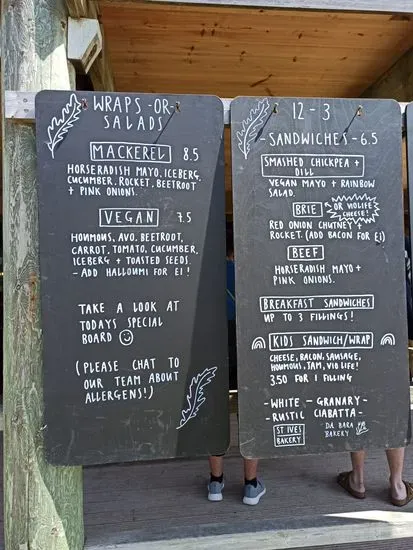 WRAPS -OR-
SALADS
MACKEREL 8.5
HORSERADISH MAYO, ICEBERG,
CUCUMBER, ROCKET, BEETROOT
+ PINK ONIONS.
VEGAN 7.5
HOUMOUS, AVO, BEETROOT,
CARROT, TOMATO, CUCUMBER,
ICEBERG + TOASTED SEEDS.
- ADD HALLOUMI FOR £1!
TAKE A LOOK AT
TODAYS SPECIAL
BOARD
(PLEASE CHAT TO
OUR TEAM ABOUT
ALLERGENS!)
12 - 3
-SANDWICHES- 6.5
SMASHED CHICKPEA +
DILL
VEGAN MAYO + RAINBOW
SALAD.
BRIE OR VIOLIFE
CHEESE!
RED ONION CHUTNEY +
ROCKET. (ADD BACON FOR £1)
BEEF
HORSERADISH MAYO +
PINK ONIONS.
BREAKFAST SANDWICHES
UP TO 3 FILLINGS!
KIDS SANDWICH/WRAP
CHEESE, BACON, SAUSAGE,
HOUMOUS, JAM, VIO LIFE!
3.50 FOR 1 FILLING
-WHITE - GRANARY-
-RUSTIC CIABATTA-
ST IVES
BAKERY
DA BARA
BAKERY